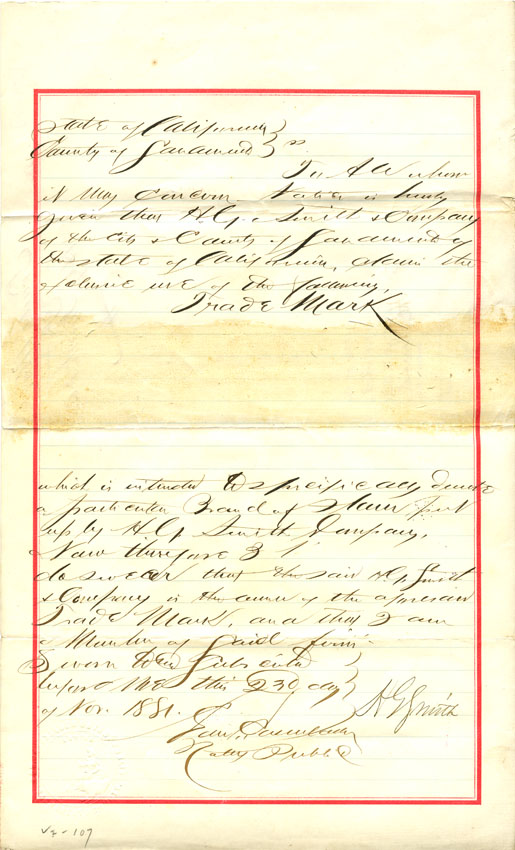 State of California }
County of Sacramento } ss.
To All whom
it May Concern. Notice is hereby
given that H.G. Smith & Company
of the City & County of Sacramento of
the State of California, claim the
exclusive use of the following,
Trade Mark
which is intended to specifically denote
a particular Brand of Flour put
up by H.G. Smith & Company,
Now therefore I
do swear that the said H.G. Smith
& Company is the owner of the aforesaid
Trade Mark, and that I am
a Member of Said firm.
Sworn to and Subscribed }
before Me this 23d day }
of Nov. 1881. H G Smith
Notary Public
V2-107